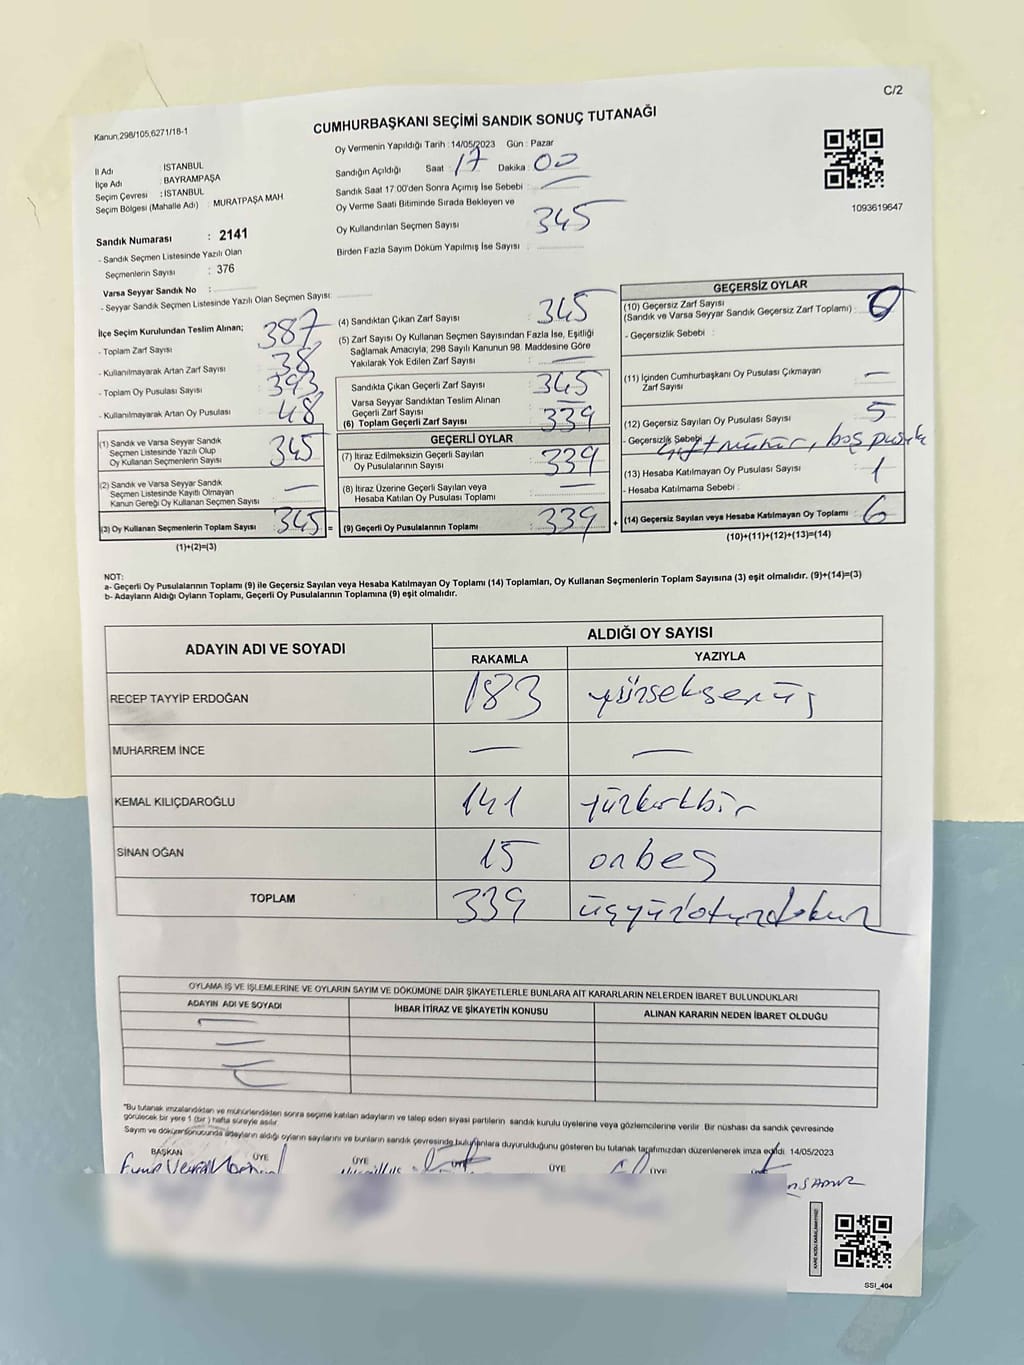 C/2
Kanun,298/105,6271/18-1
CUMHURBAŞKANI SEÇİMİ SANDIK SONUÇ TUTANAĞI
Oy Vermenin Yapıldığı Tarih : 14/05/2023 Gün : Pazar
İl Adı : İSTANBUL
İlçe Adı : BAYRAMPAŞA
Seçim Çevresi : İSTANBUL
Seçim Bölgesi (Mahalle Adı) : MURATPAŞA MAH
Sandığın Açıldığı Saat : 17 Dakika : 00
Sandık Saat 17:00'den Sonra Açımış İse Sebebi : —
Oy Verme Saati Bitiminde Sırada Bekleyen ve
Oy Kullandırılan Seçmen Sayısı : 345
Birden Fazla Sayım Döküm Yapılmış İse Sayısı :
1093619647
Sandık Numarası : 2141
- Sandık Seçmen Listesinde Yazılı Olan
Seçmenlerin Sayısı : 376
Varsa Seyyar Sandık No :
- Seyyar Sandık Seçmen Listesinde Yazılı Olan Seçmen Sayısı:
İlçe Seçim Kurulundan Teslim Alınan;
- Toplam Zarf Sayısı 387
- Kullanılmayarak Artan Zarf Sayısı 38
- Toplam Oy Pusulası Sayısı 393
- Kullanılmayarak Artan Oy Pusulası 48
(1) Sandık ve Varsa Seyyar Sandık
Seçmen Listesinde Yazılı Olup
Oy Kullanan Seçmenlerin Sayısı 345
(2) Sandık ve Varsa Seyyar Sandık
Seçmen Listesinde Kayıtlı Olmayan
Kanun Gereği Oy Kullanan Seçmen Sayısı : —
(3) Oy Kullanan Seçmenlerin Toplam Sayısı 345 =
(1)+(2)=(3)
(4) Sandıktan Çıkan Zarf Sayısı : 345
(5) Zarf Sayısı Oy Kullanan Seçmen Sayısından Fazla İse, Eşitliği
Sağlamak Amacıyla, 298 Sayılı Kanunun 98. Maddesine Göre
Yakılarak Yok Edilen Zarf Sayısı : —
Sandıkta Çıkan Geçerli Zarf Sayısı : 345
Varsa Seyyar Sandıktan Teslim Alınan
Geçerli Zarf Sayısı : —
(6) Toplam Geçerli Zarf Sayısı : 339
GEÇERLİ OYLAR
(7) İtiraz Edilmeksizin Geçerli Sayılan
Oy Pusulalarının Sayısı : 339
(8) İtiraz Üzerine Geçerli Sayılan veya
Hesaba Katılan Oy Pusulası Toplamı : —
(9) Geçerli Oy Pusulalarının Toplamı : 339 +
GEÇERSİZ OYLAR
(10) Geçersiz Zarf Sayısı
(Sandık ve Varsa Seyyar Sandık Geçersiz Zarf Toplamı) : 0
- Geçersizlik Sebebi :
(11) İçinden Cumhurbaşkanı Oy Pusulası Çıkmayan
Zarf Sayısı : —
(12) Geçersiz Sayılan Oy Pusulası Sayısı : 5
- Geçersizlik Sebebi : çift mühür, boş pusula
(13) Hesaba Katılmayan Oy Pusulası Sayısı : 1
- Hesaba Katılmama Sebebi :
(14) Geçersiz Sayılan veya Hesaba Katılmayan Oy Toplamı : 6
(10)+(11)+(12)+(13)=(14)
NOT:
a- Geçerli Oy Pusulalarının Toplamı (9) ile Geçersiz Sayılan veya Hesaba Katılmayan Oy Toplamı (14) Toplamları, Oy Kullanan Seçmenlerin Toplam Sayısına (3) eşit olmalıdır. (9)+(14)=(3)
b- Adayların Aldığı Oyların Toplamı, Geçerli Oy Pusulalarının Toplamına (9) eşit olmalıdır.
ADAYIN ADI VE SOYADI ALDIĞI OY SAYISI
RAKAMLA YAZIYLA
RECEP TAYYİP ERDOĞAN 183 yüzseksenüç
MUHARREM İNCE — —
KEMAL KILIÇDAROĞLU 141 yüzkırkbir
SİNAN OĞAN 15 onbeş
TOPLAM 339 üçyüzotuzdokuz
OYLAMA İŞ VE İŞLEMLERİNE VE OYLARIN SAYIM VE DÖKÜMÜNE DAİR ŞİKAYETLERLE BUNLARA AİT KARARLARIN NELERDEN İBARET BULUNDUKLARI
ADAYIN ADI VE SOYADI İHBAR İTİRAZ VE ŞİKAYETİN KONUSU ALINAN KARARIN NEDEN İBARET OLDUĞU
"Bu tutanak imzalandıktan ve mühürlendikten sonra seçime katılan adayların ve talep eden siyasi partilerin sandık kurulu üyelerine veya gözlemcilerine verilir. Bir nüshası da sandık çevresinde
görülecek bir yere 1 (bir) hafta süreyle asılır.
Sayım ve döküm sonucunda adayların aldığı oyların sayılarını ve bunların sandık çevresinde bulunanlara duyurulduğunu gösteren bu tutanak tarafımızdan düzenlenerek imza edildi. 14/05/2023
BAŞKAN ÜYE ÜYE ÜYE ÜYE
KARE KODU KARALAMAYINIZ!
SSI_404